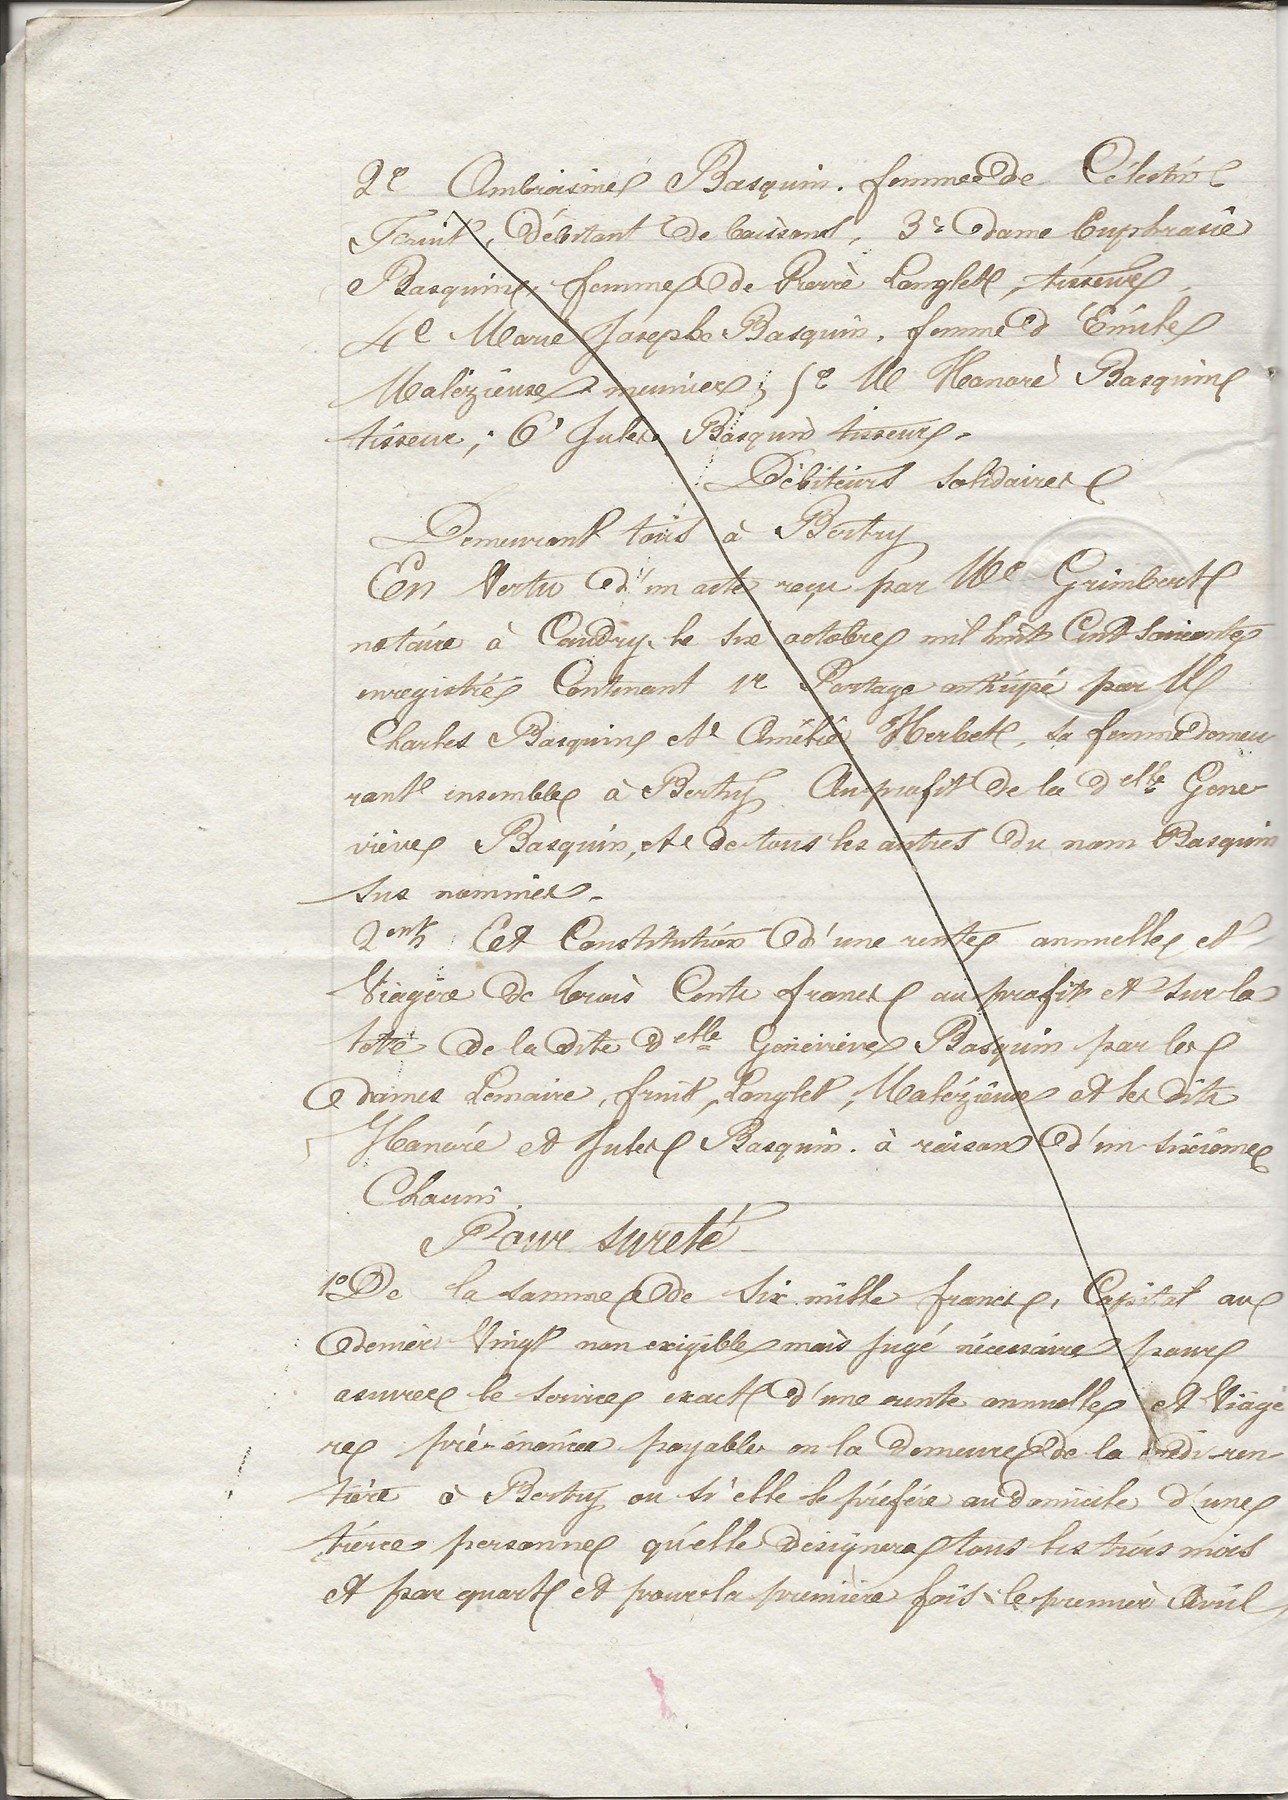 2e Ambroisine Basquin. femme de Célestin
Fruit, débitant de boissons, 3e dame Euphrasie
Basquin, femme de Pierre Langlet, tisseur
4e Marie Josephe Basquin. femme d'Emile
Malézieux meunier; 5e M Honoré Basquin
tisseur; 6e Jules Basquin tisseur.
Débiteurs solidaires
Demeurant tous à Bertry
En Vertu d'un acte reçu par Me Grimbert
notaire à Caudry, le six octobre mil huit Cent soixante
enregistré Contenant 1e Partage anticipé par M
Charles Basquin et Amélie Herbet, sa femme demeu
rant ensemble à Bertry Au profit de la delle Gene-
viève Basquin, et de tous les autres du nom Basquin
sus nommés.
2ent Et Constitution d'une rente annuelle et
Viagère de trois Cents francs au profit et sur la
tête de la dite delle Geneviève Basquin par les
dames Lemaire, fruit, Langlet, Malézieux et les dits
Honoré et Jules Basquin. à raison d'un sixième
Chacun.
Pour sureté
1o De la somme de Six mille francs, Capital au
denier Vingt non exigible mais jugé nécessaire pour
assurer le service exact d'une rente annuelle et Viagè
re pré-énoncée payable en la demeure de la crédi-ren-
tière à Bertry ou si elle le préfère au domicile d'une
tierce personne qu'elle designera tous les trois mois
et par quart et pour la première fois le premier Avril